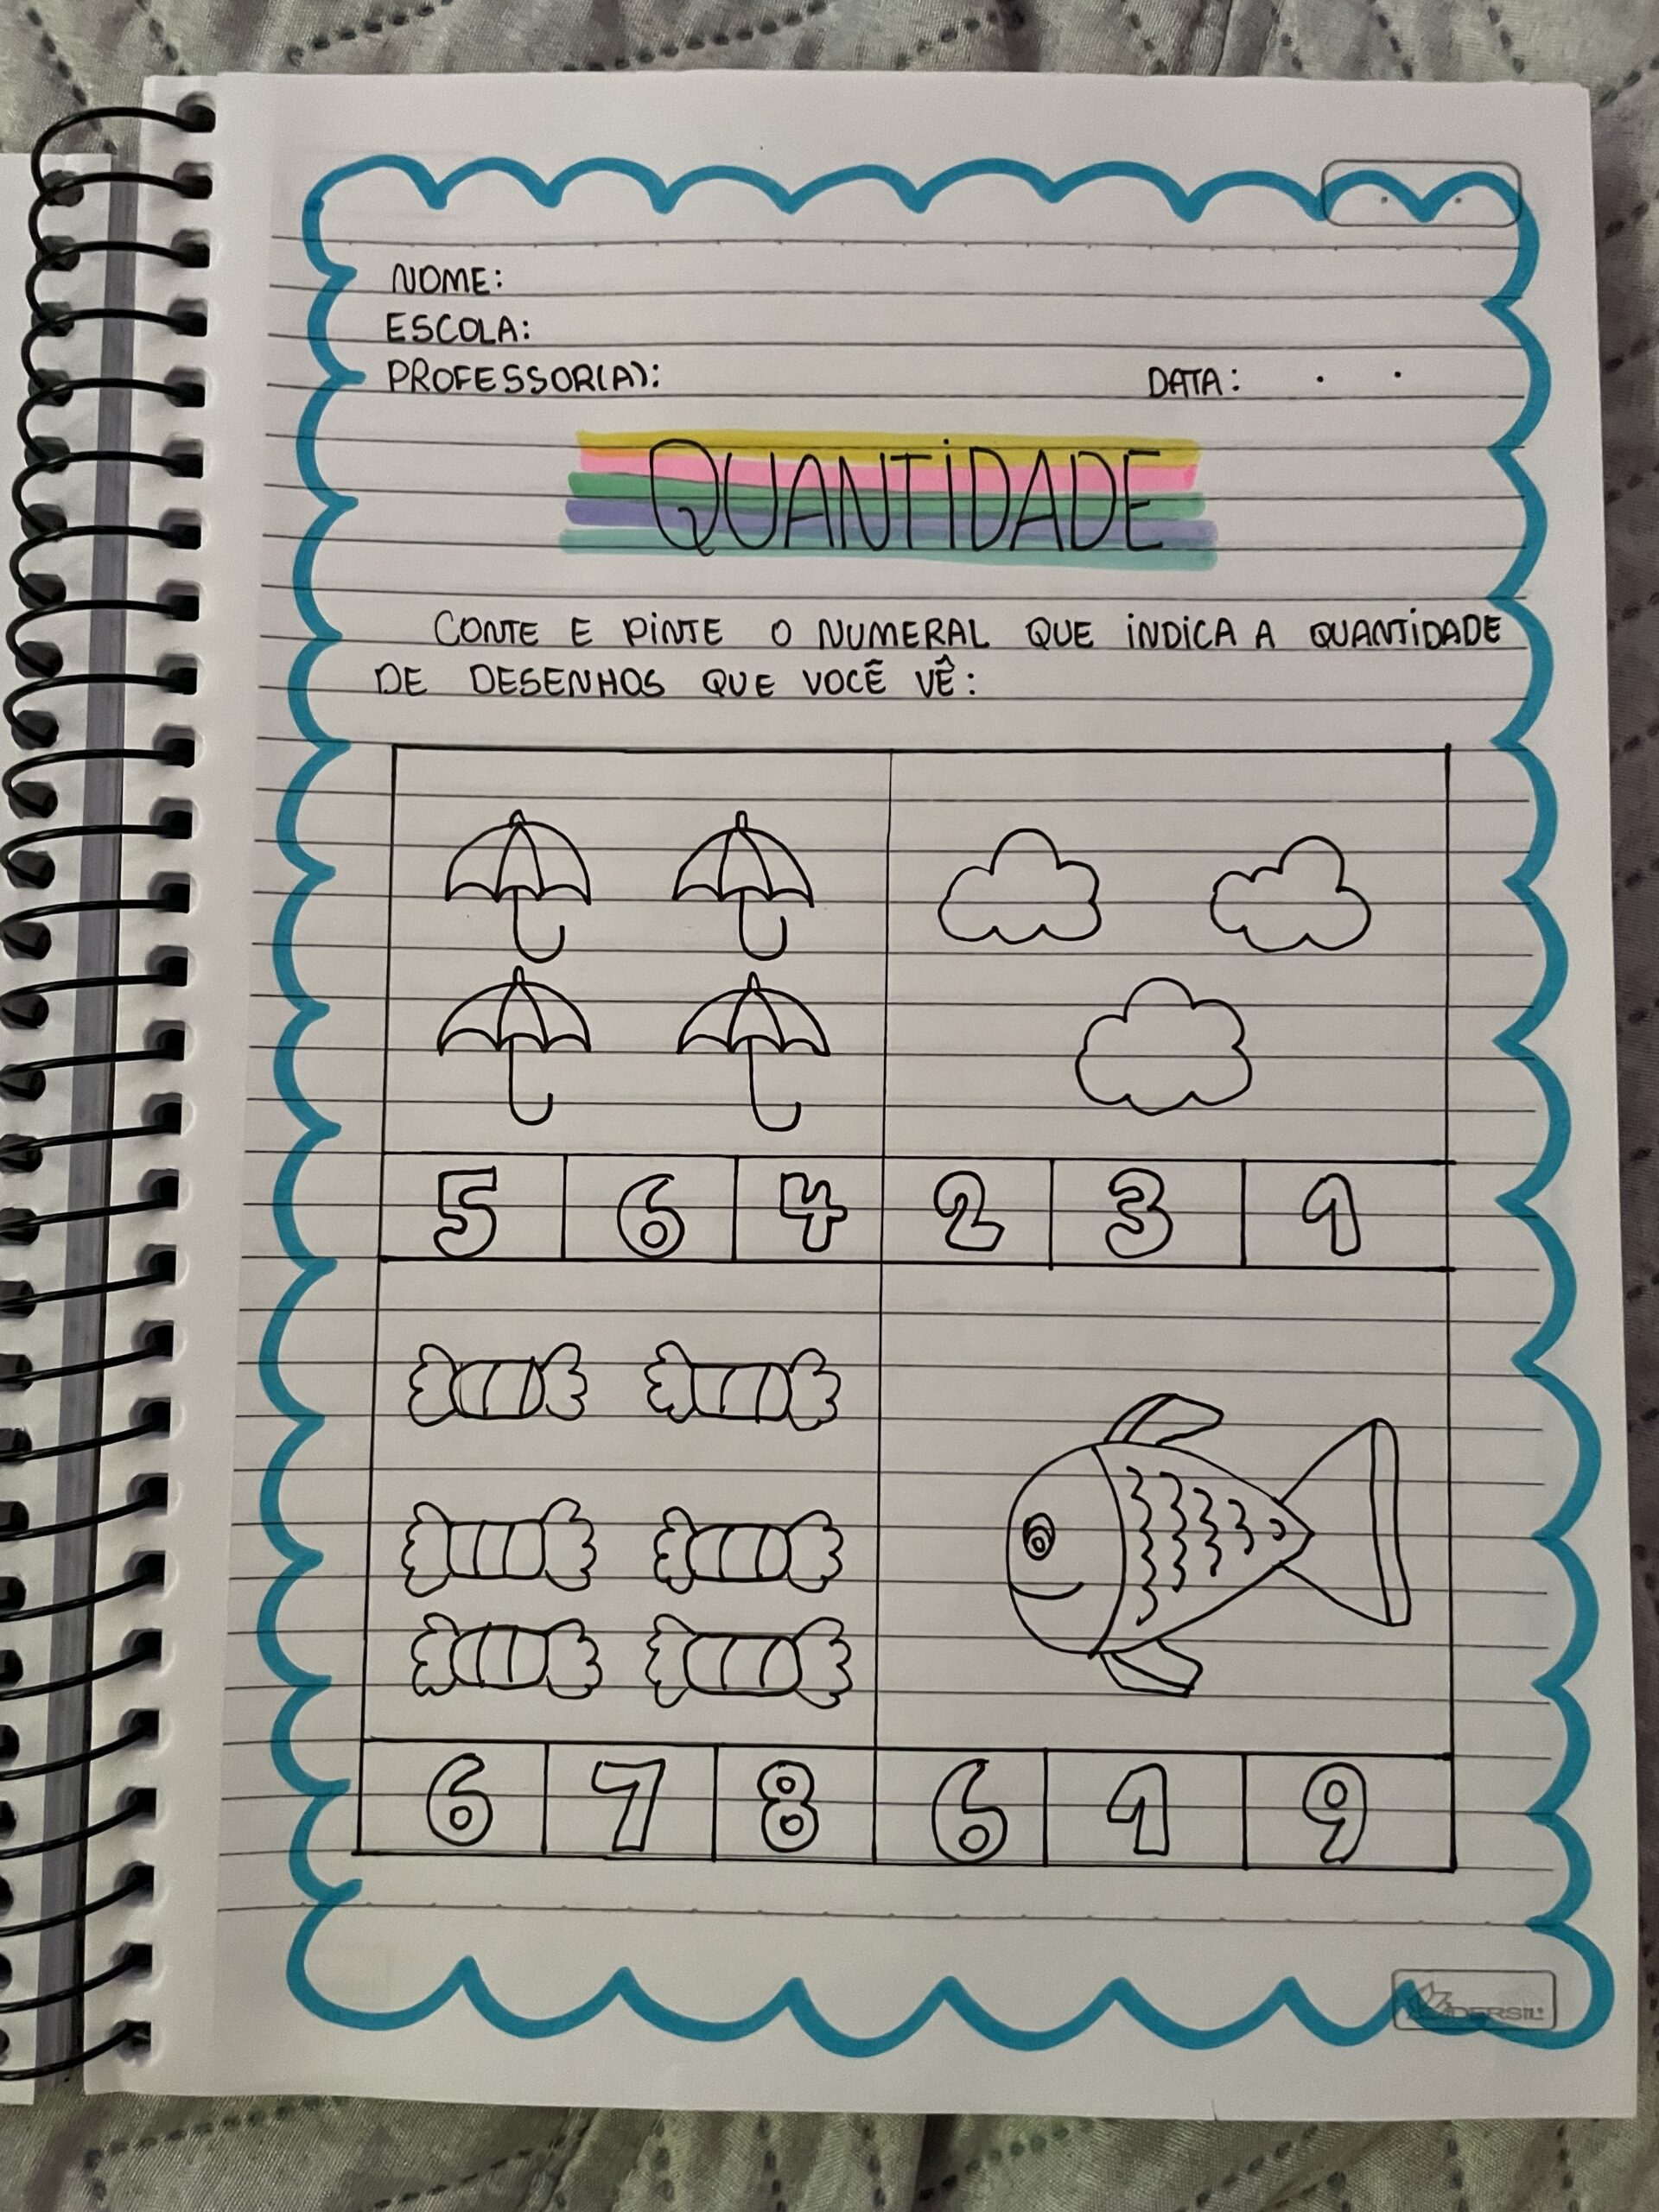 NOME:
ESCOLA:
PROFESSOR(A): DATA: . .
QUANTIDADE
CONTE E PINTE O NUMERAL QUE INDICA A QUANTIDADE
DE DESENHOS QUE VOCÊ VÊ:
5 6 4 2 3 1
6 7 8 6 1 9